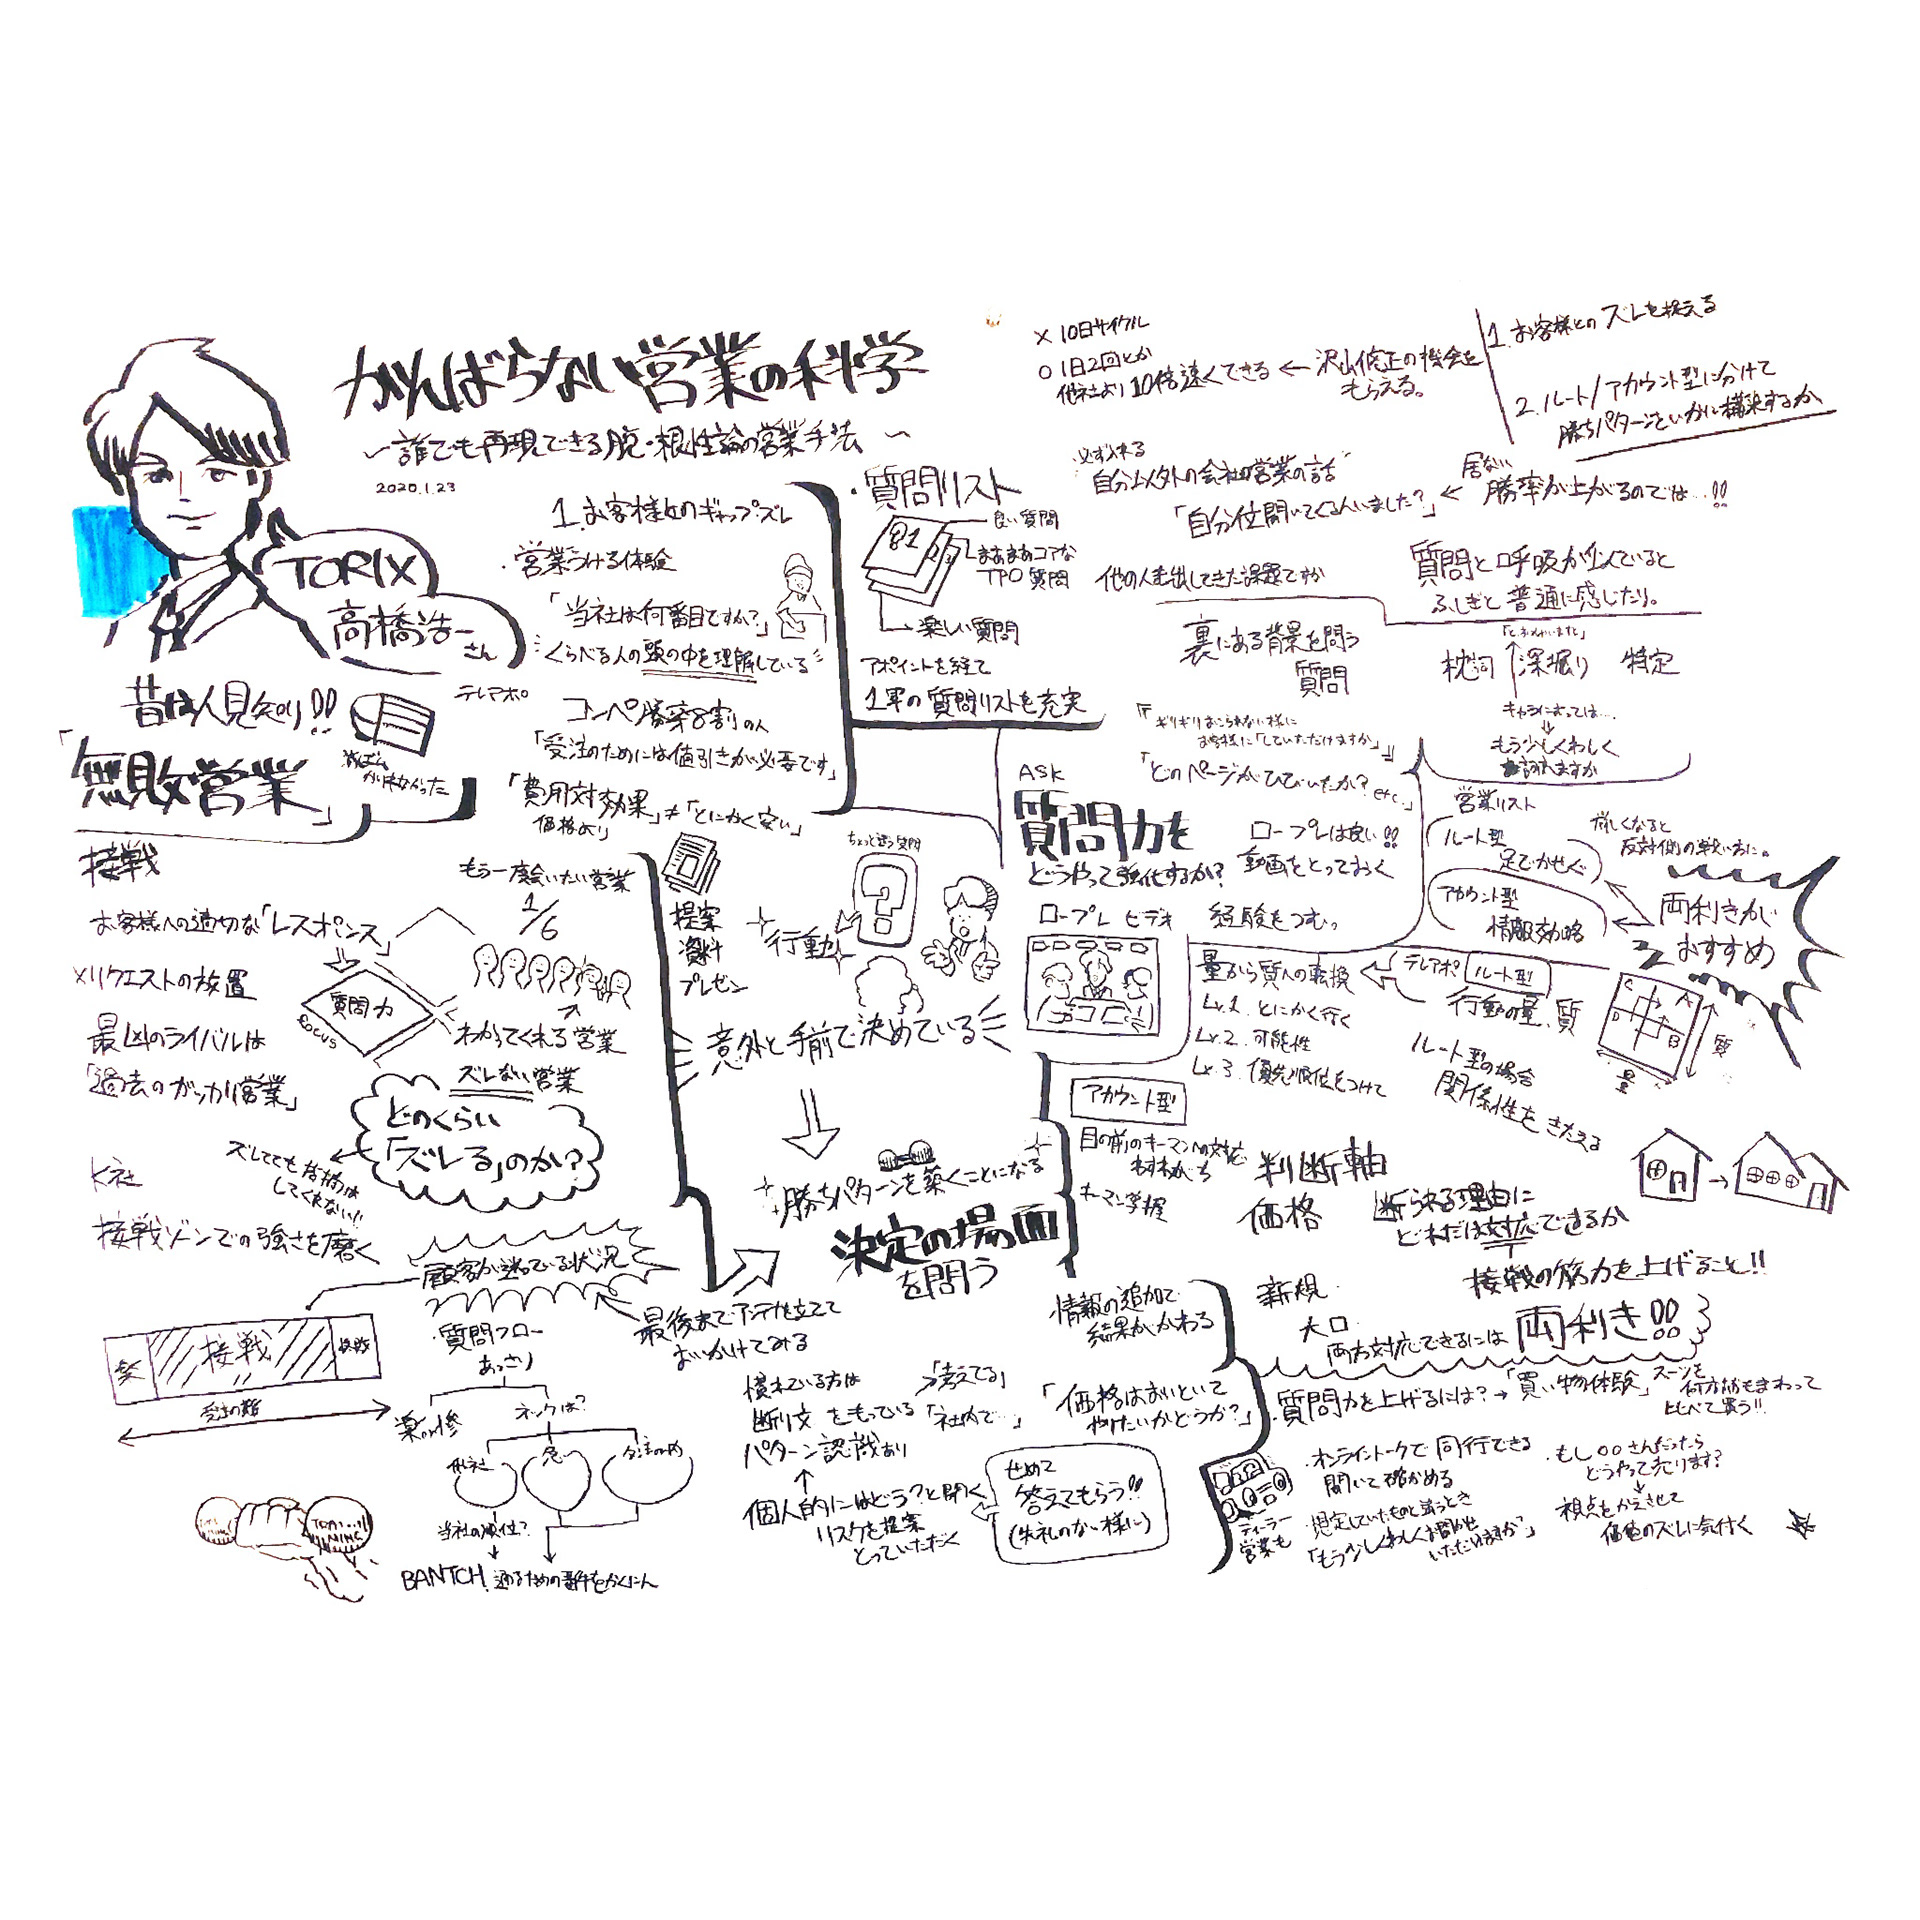 がんばらない営業の科学
〜誰でも再現できる脱・根性論の営業手法〜
2020.1.23
TORIX
高橋浩一さん
昔は人見知り!!
テレアポ
「無敗営業」
接戦
お客様への適切な「レスポンス」
×リクエストの放置
最凶のライバルは
「過去のガッカリ営業」
質問力
focus
もう一度会いたい営業
1/6
わかってくれる営業
ズレない営業
どのくらい
「ズレる」のか?
ズレてても指摘は
してくれない!!
K社
接戦ゾーンでの強さを磨く
顧客が迷っている状況
接戦
・質問フロー
あっさり
楽勝or惨
ネックは?
他社
当社の順位?
BANTCH
1.お客様とのギャップ・ズレ
・営業うける体験
「当社は何番目ですか?」
くらべる人の頭の中を理解している
コンペ勝率8割の人
「受注のためには値引きが必要です」
「費用対効果」≠「とにかく安い」
価格より
提案
資料
プレゼン
行動
ちょっと違う質問
意外と手前で決めている
勝ちパターンを築くことになる
決定の場面
を問う
最後までアンテナ立てて
おいかけてみる
慣れている方は
断り文をもっている
「考えてる」
「社内で…」
パターン認識あり
個人的にはどう?と聞く
リスクを提案
とっていただく
せめて
答えてもらう!!
(失礼のない様に)
・質問リスト
良い質問
まあまあコアな
TPO質問
楽しい質問
アポイントを経て
1軍の質問リストを充実
×10日サイクル
○1日2回とか
他社より10倍速くできる ← 沢山修正の機会を
もらえる。
1.お客様とのズレを捉える
2.ルート/アカウント型に分けて
勝ちパターンをいかに構築するか
必ず入れる
自分以外の会社の営業の話
「自分位聞いてくる人いました?」
居ない
← 勝率が上がるのでは…!!
他の人も出してきた課題ですか
質問と呼吸が似ていると
ふしぎと普通に感じたり。
裏にある背景を問う
質問
「といいますと」
枕詞 深掘り 特定
キャラによっては…
もう少しくわしく
ギリギリおこられない様に
お客様に「していただけますか」
「どのページがひびいたか? etc.」
ASK
質問力を
どうやって強化するか?
ロープレは良い!!
動画をとっておく
ロープレ ビデオ
経験をつむ。
量から質への転換
Lv.1. とにかく行く
Lv.2. 可能性
Lv.3. 優先順位をつけて
営業リスト
ルート型
足でかせぐ
アカウント型
苦しくなると
反対側の戦い方に。
両利きが
おすすめ
テレアポ
ルート型
行動の量、質
C
A
D
B
質
量
ルート型の場合
関係性をきたえる
アカウント型
目の前のキーマンへの対応
キーマン掌握
判断軸
価格
断られる理由に
どれだけ対応できるか
接戦の筋力を上げること!!
情報の追加で
結果がかわる
新規
大口
両方対応できるには 両利き!!
「価格はおいといて
やりたいかどうか?」
質問力を上げるには?→「買い物体験」
スーツを
何カ所もまわって
比べて買う!!
ディーラー
営業も
・オンライントークで同行できる
聞いて確かめる
・想定していたものと違うとき
「もう少しくわしくお聞かせ
いただけますか?」
・もし○○さんだったら
どうやって売ります?
視点をかえさせて
価値のズレに気付く